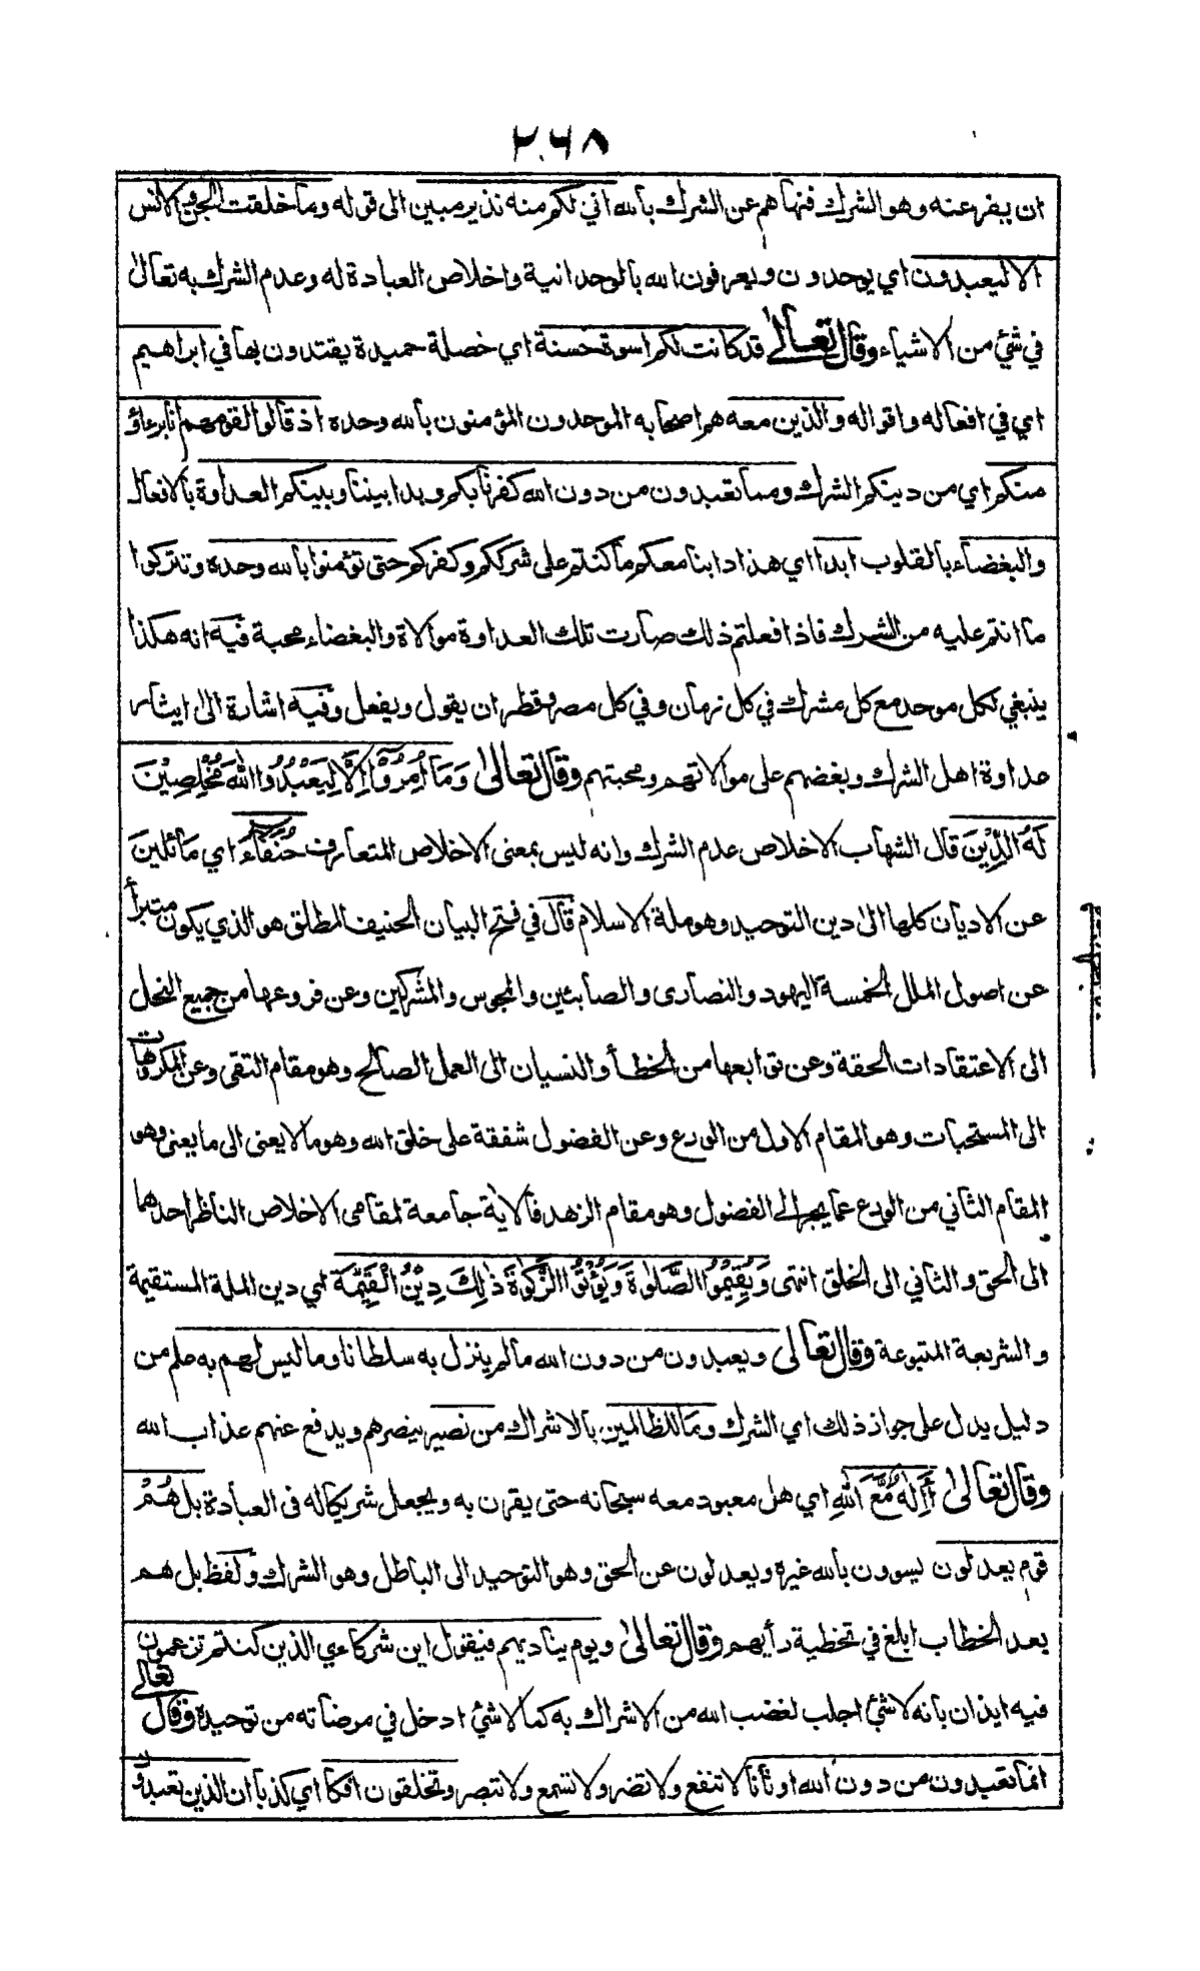 ٢٦٨
ان يفر عنه وهو الشرك فنهاهم عن الشرك بالله اني لكم منه نذير مبين الى قوله وما خلقت الجن والانس
الا ليعبدون اي يوحدون ويعرفون الله بالوحدانية واخلاص العبادة له وعدم الشرك به تعالى
في شئ من الاشياء وقال تعالى قد كانت لكم اسوة حسنة اي خصلة حميدة يقتدون بها في ابراهيم
اي في افعاله واقواله والذين معه هم اصحابه الموحدون المؤمنون بالله وحده اذ قالوا لقومهم انا برءاؤ
منكم اي من دينكم الشرك ومما تعبدون من دون الله كفرنا بكم وبدا بيننا وبينكم العداوة بالافعال
والبغضاء بالقلوب ابدا اي هذا دابنا معكم ما كنتم على شرككم وكفركم حتى تؤمنوا بالله وحده وتتركوا
ما انتم عليه من الشرك فاذا فعلتم ذلك صارت تلك العداوة موالاة والبغضاء محبة فيه انه هكذا
ينبغي لكل موحد مع كل مشرك في كل زمان وفي كل مصر وقطر ان يقول ويفعل وفيه اشارة الى ايثار
عداوة اهل الشرك وبغضهم على موالاتهم ومحبتهم وقال تعالى وَمَا اُمِرُوْا اِلَّا لِيَعْبُدُوا اللهَ مُخْلِصِيْنَ
لَهُ الدِّيْنَ قال الشهاب الاخلاص عدم الشرك وانه ليس بمعنى الاخلاص المتعارف حُنَفَاءَ اي مائلين
عن الاديان كلها الى دين التوحيد وهو ملة الاسلام قال في فتح البيان الحنيف المطلق هو الذي يكون متبرأ
عن اصول الملل الخمسة اليهود والنصارى والصابئين والمجوس والمشركين وعن فروعها من جميع النحل
الى الاعتقادات الحقة وعن توابعها من الخطأ والنسيان الى العمل الصالح وهو مقام التقى وعن المكروهات
الى المستحبات وهو المقام الاول من الورع وعن الفضول شفقة على خلق الله وهو ما لا يعنى الى ما يعنى وهو
المقام الثاني من الورع عما يجر الى الفضول وهو مقام الزهد فالاية جامعة لمقامى الاخلاص الناظر احدهما
الى الحق والثاني الى الخلق انتهى وَيُقِيْمُوا الصَّلٰوةَ وَيُؤْتُوا الزَّكٰوةَ ذٰلِكَ دِيْنُ الْقَيِّمَةِ اي دين الملة المستقيمة
والشريعة المتبوعة وقال تعالى ويعبدون من دون الله ما لم ينزل به سلطانا وما ليس لهم به علم من
دليل يدل على جواز ذلك اي الشرك وما للظالمين بالاشراك من نصير ينصرهم ويدفع عنهم عذاب الله
وقال تعالى أَإِلٰهٌ مَّعَ اللهِ اي هل معبود معه سبحانه حتى يقرن به ويجعل شريكا له في العبادة بل هُمْ
قوم يعدلون يسوون بالله غيره ويعدلون عن الحق وهو التوحيد الى الباطل وهو الشرك ولفظ بل هم
بعد الخطاب ابلغ في تخطية رأيهم وقال تعالى ويوم يناديهم فيقول اين شركاءي الذين كنتم تزعمون
فيه ايذان بانه لا شئ اجلب لغضب الله من الاشراك به كما لا شئ ادخل في مرضاته من توحيده وقال تعالى
انما تعبدون من دون الله اوثانا لا تنفع ولا تضر ولا تسمع ولا تبصر وتخلقون افكا اي كذبا ان الذين تعبدون